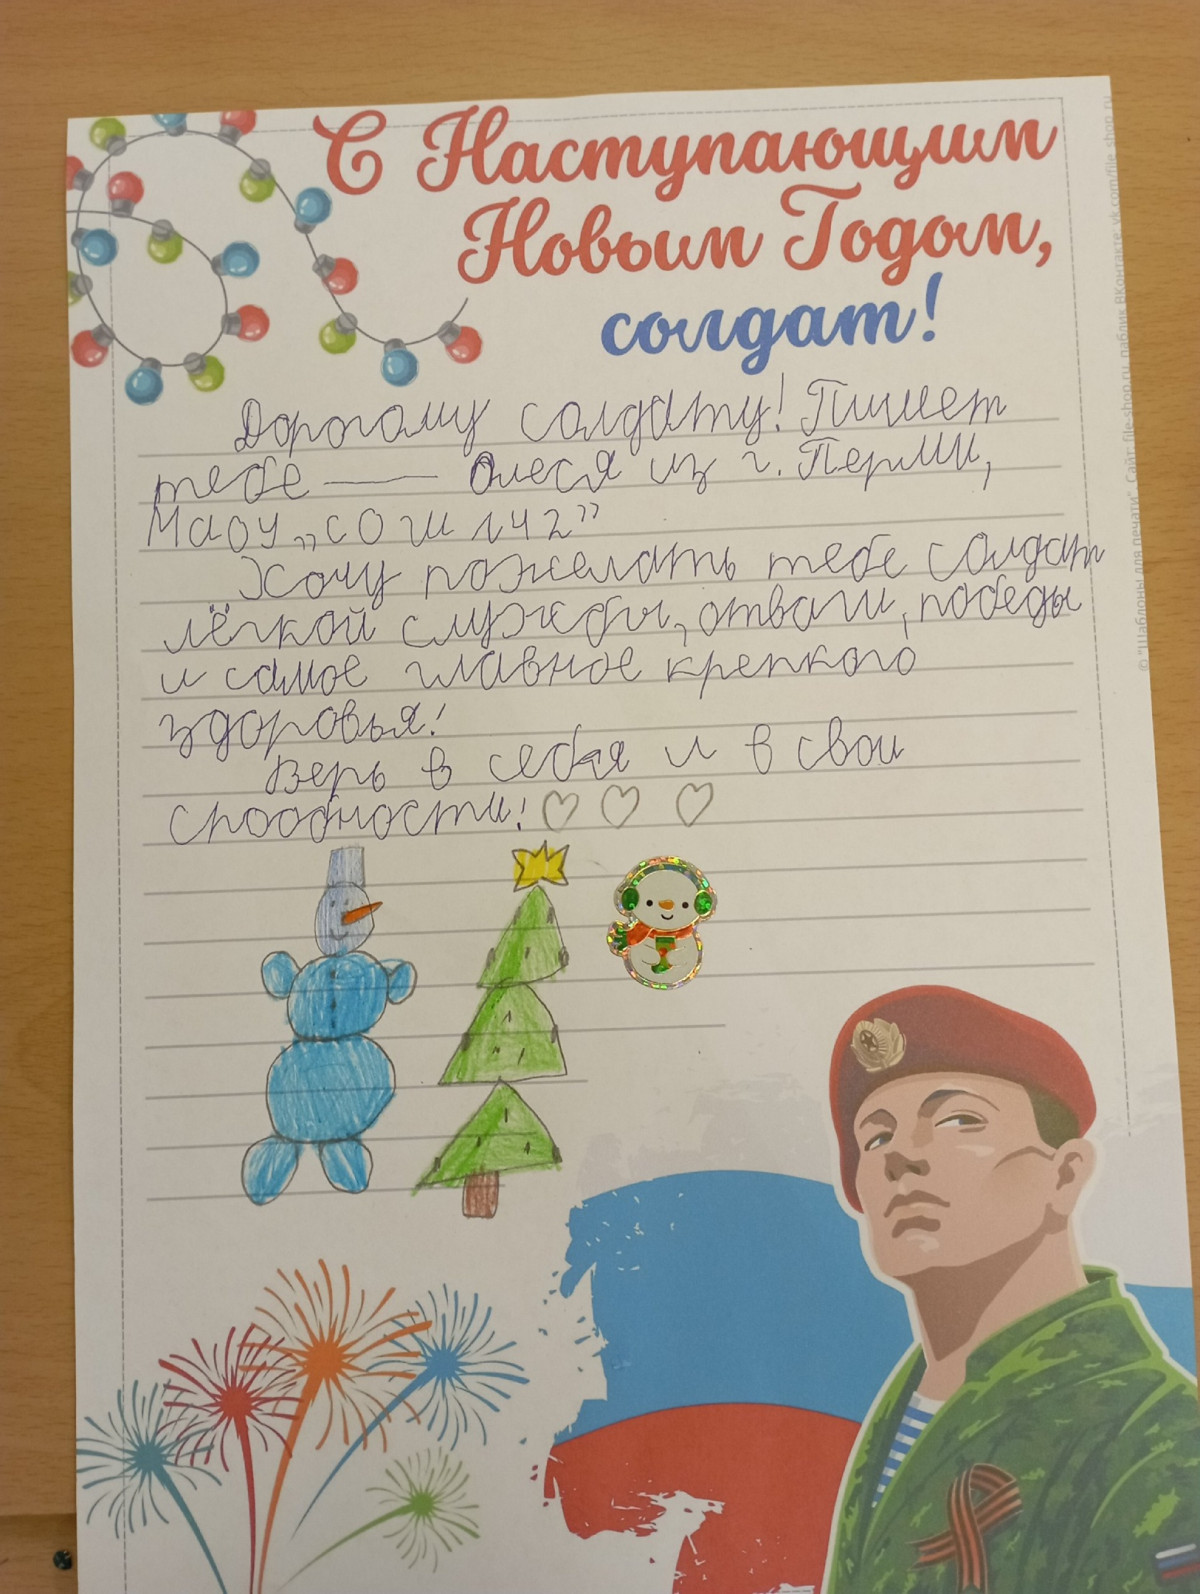 С Наступающим
Новым Годом,
солдат!
Дорогому солдату! Пишет
тебе — Олеся из г. Перми,
Маоу „сош №42”
Хочу пожелать тебе солдат
лёгкой службы, отваги, победы
и самое главное крепкого
здоровья!
Верь в себя и в свои
спообности!
© "Шаблоны для печати". Сайт: file-shop.ru, паблик ВКонтакте: vk.com/file_shop_ru